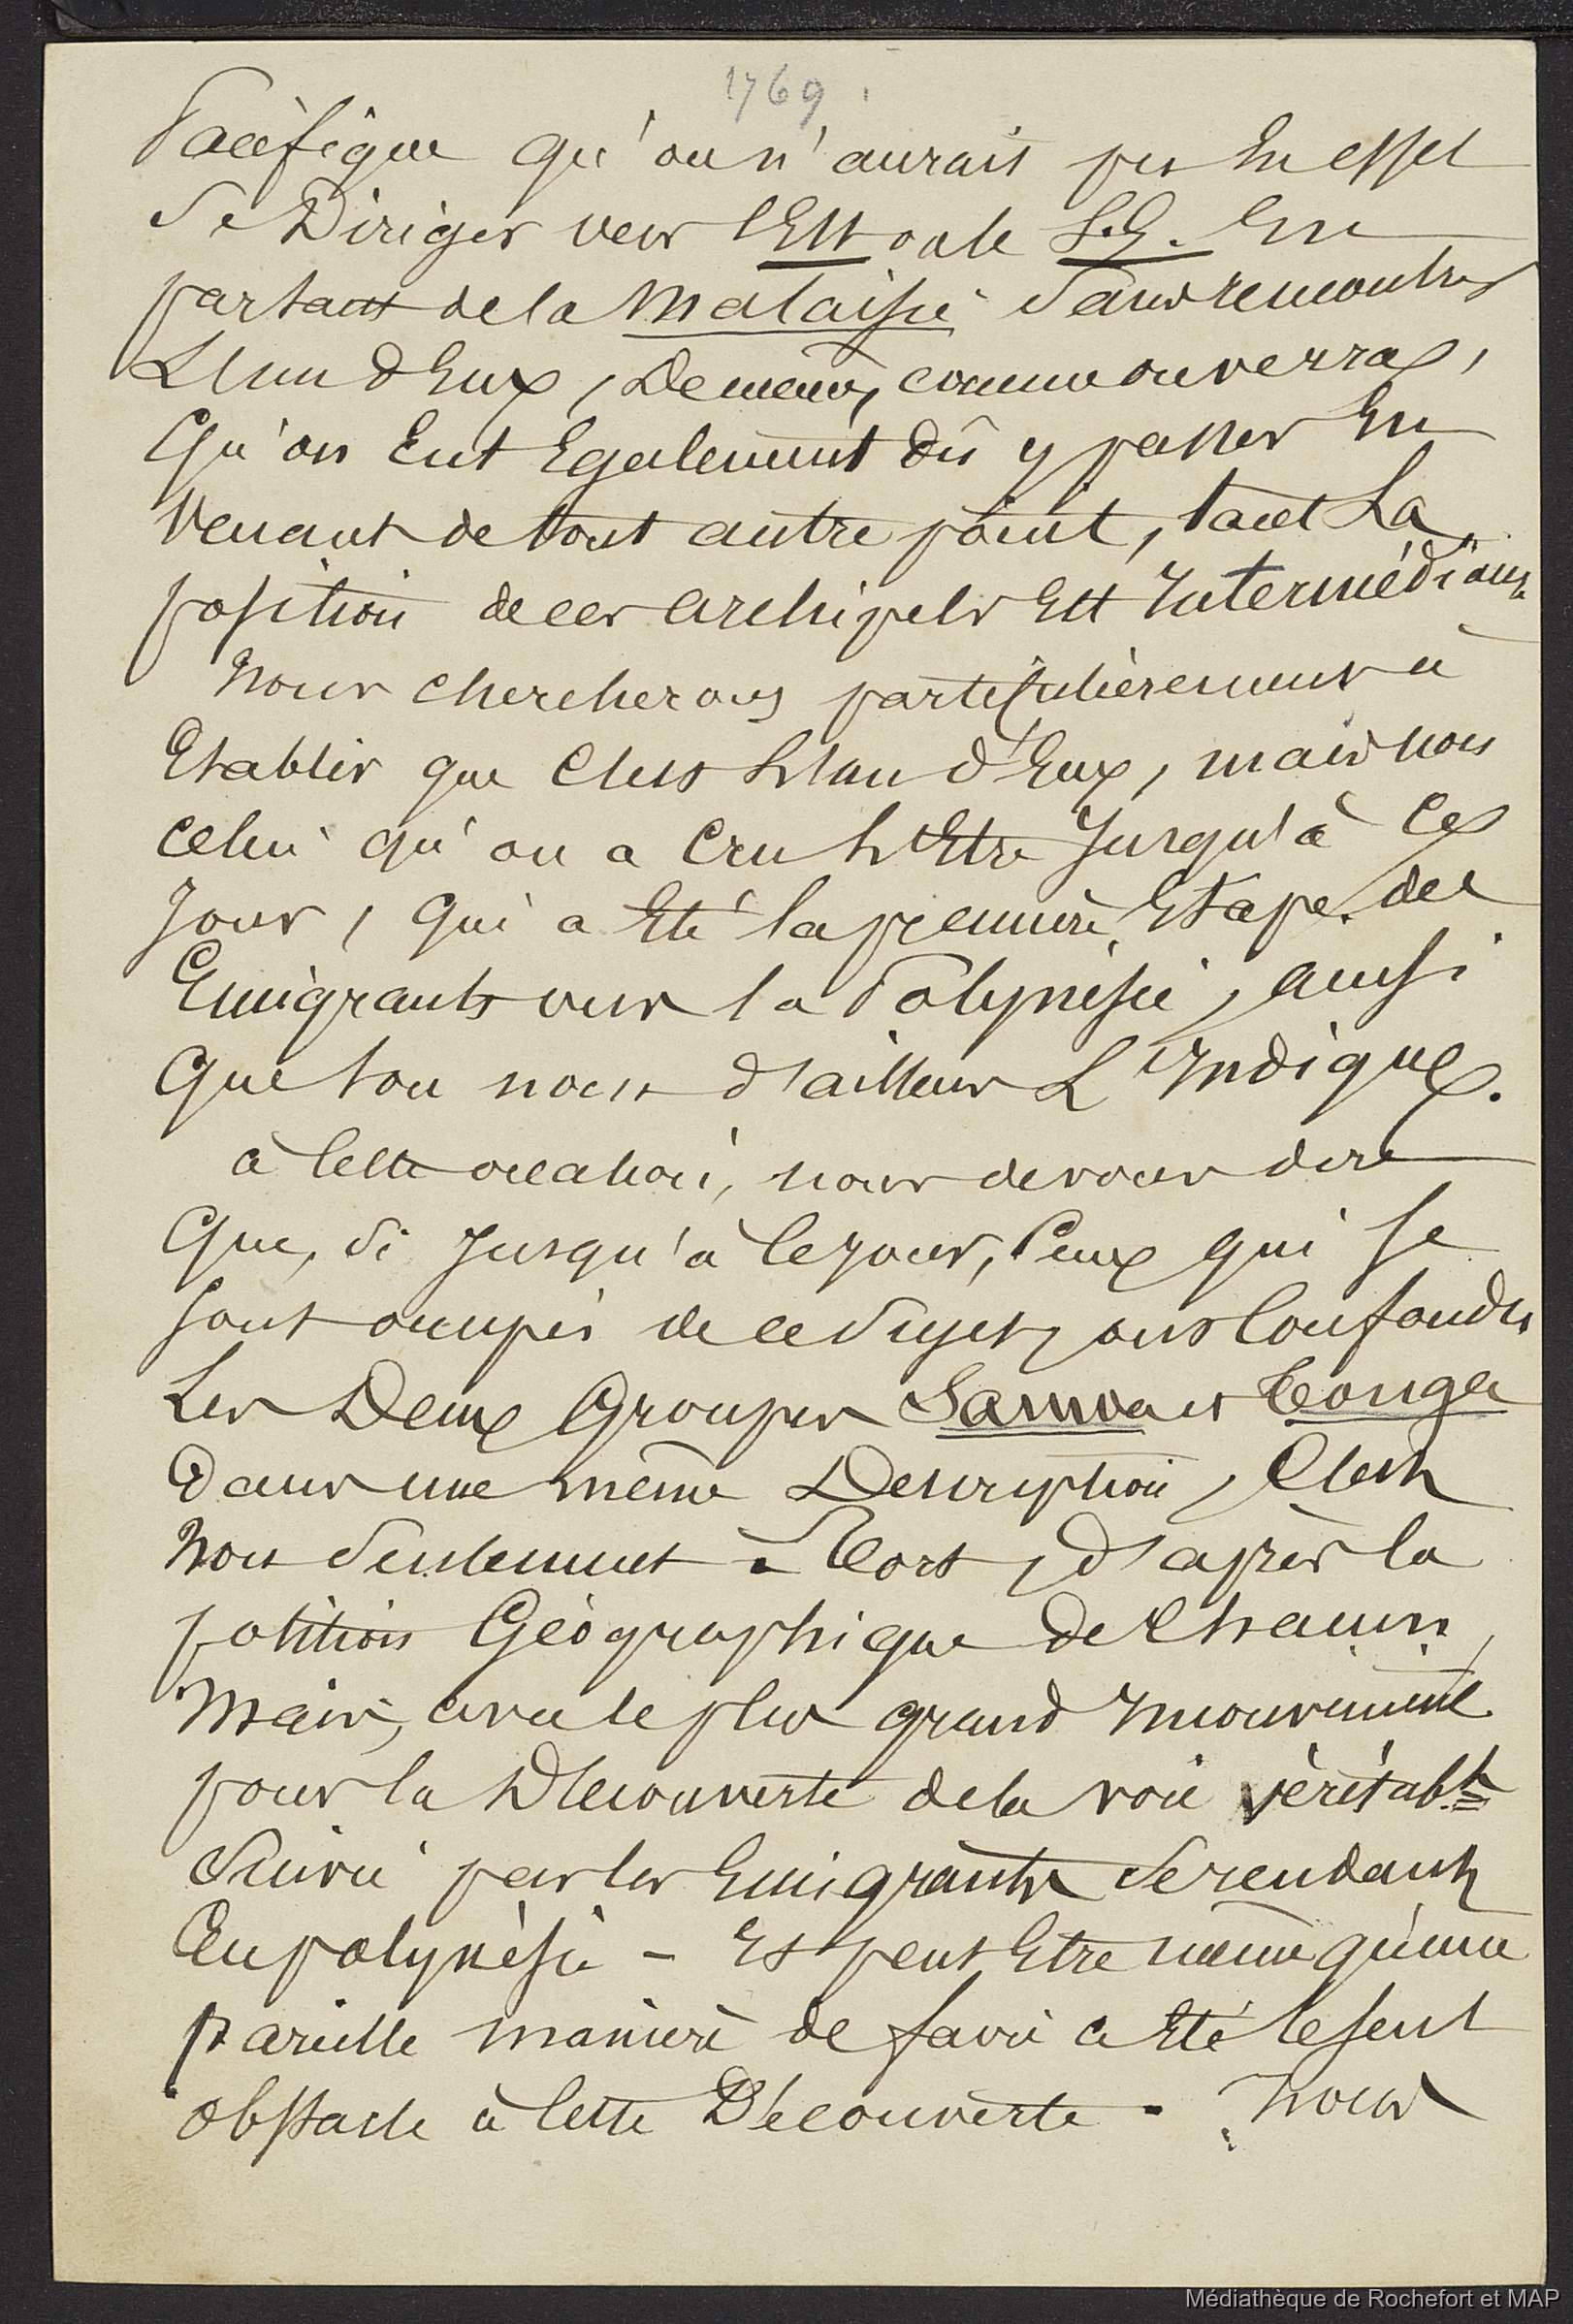 1769.
Pacifique qu'on n'aurait pu En effet
Se Diriger vers l'Est ou le S.E. En
partant de la Malaisie Sans rencontrer
L'un d'Eux, De même, comme on verra,
Qu'on Eut Egalement dû y passer En
Venant de tout autre point, tant La
position de ces archipels Est Intermédiaire
Nous chercherons particulièrement à
Etablir que c'est L'un d'Eux, mais non
celui qu'on a Cru L'Etre Jusqu'à Ce
Jour, qui a Eté la première Etape des
Emigrants vers la Polynésie, ainsi
Que son nom d'ailleurs L'Indique.
à cette occasion, nous devons dire
Que, Si Jusqu'à ce jour, Ceux qui Se
Sont occupés de ce Sujet, ont Confondu
Les Deux Groupes Samoa et Tonga
Dans une même Description, C'est
Non Seulement à Tort, d'après la
position Géographique de Chacun,
Mais, avec le plus grand Inconvénient
pour la Découverte de la voie véritable
Suivie par les Emigrants Se rendant
En polynésie - Et peut Etre même qu'une
pareille manière de faire a Eté le seul
obstacle à cette Découverte. Nous
Médiathèque de Rochefort et MAP